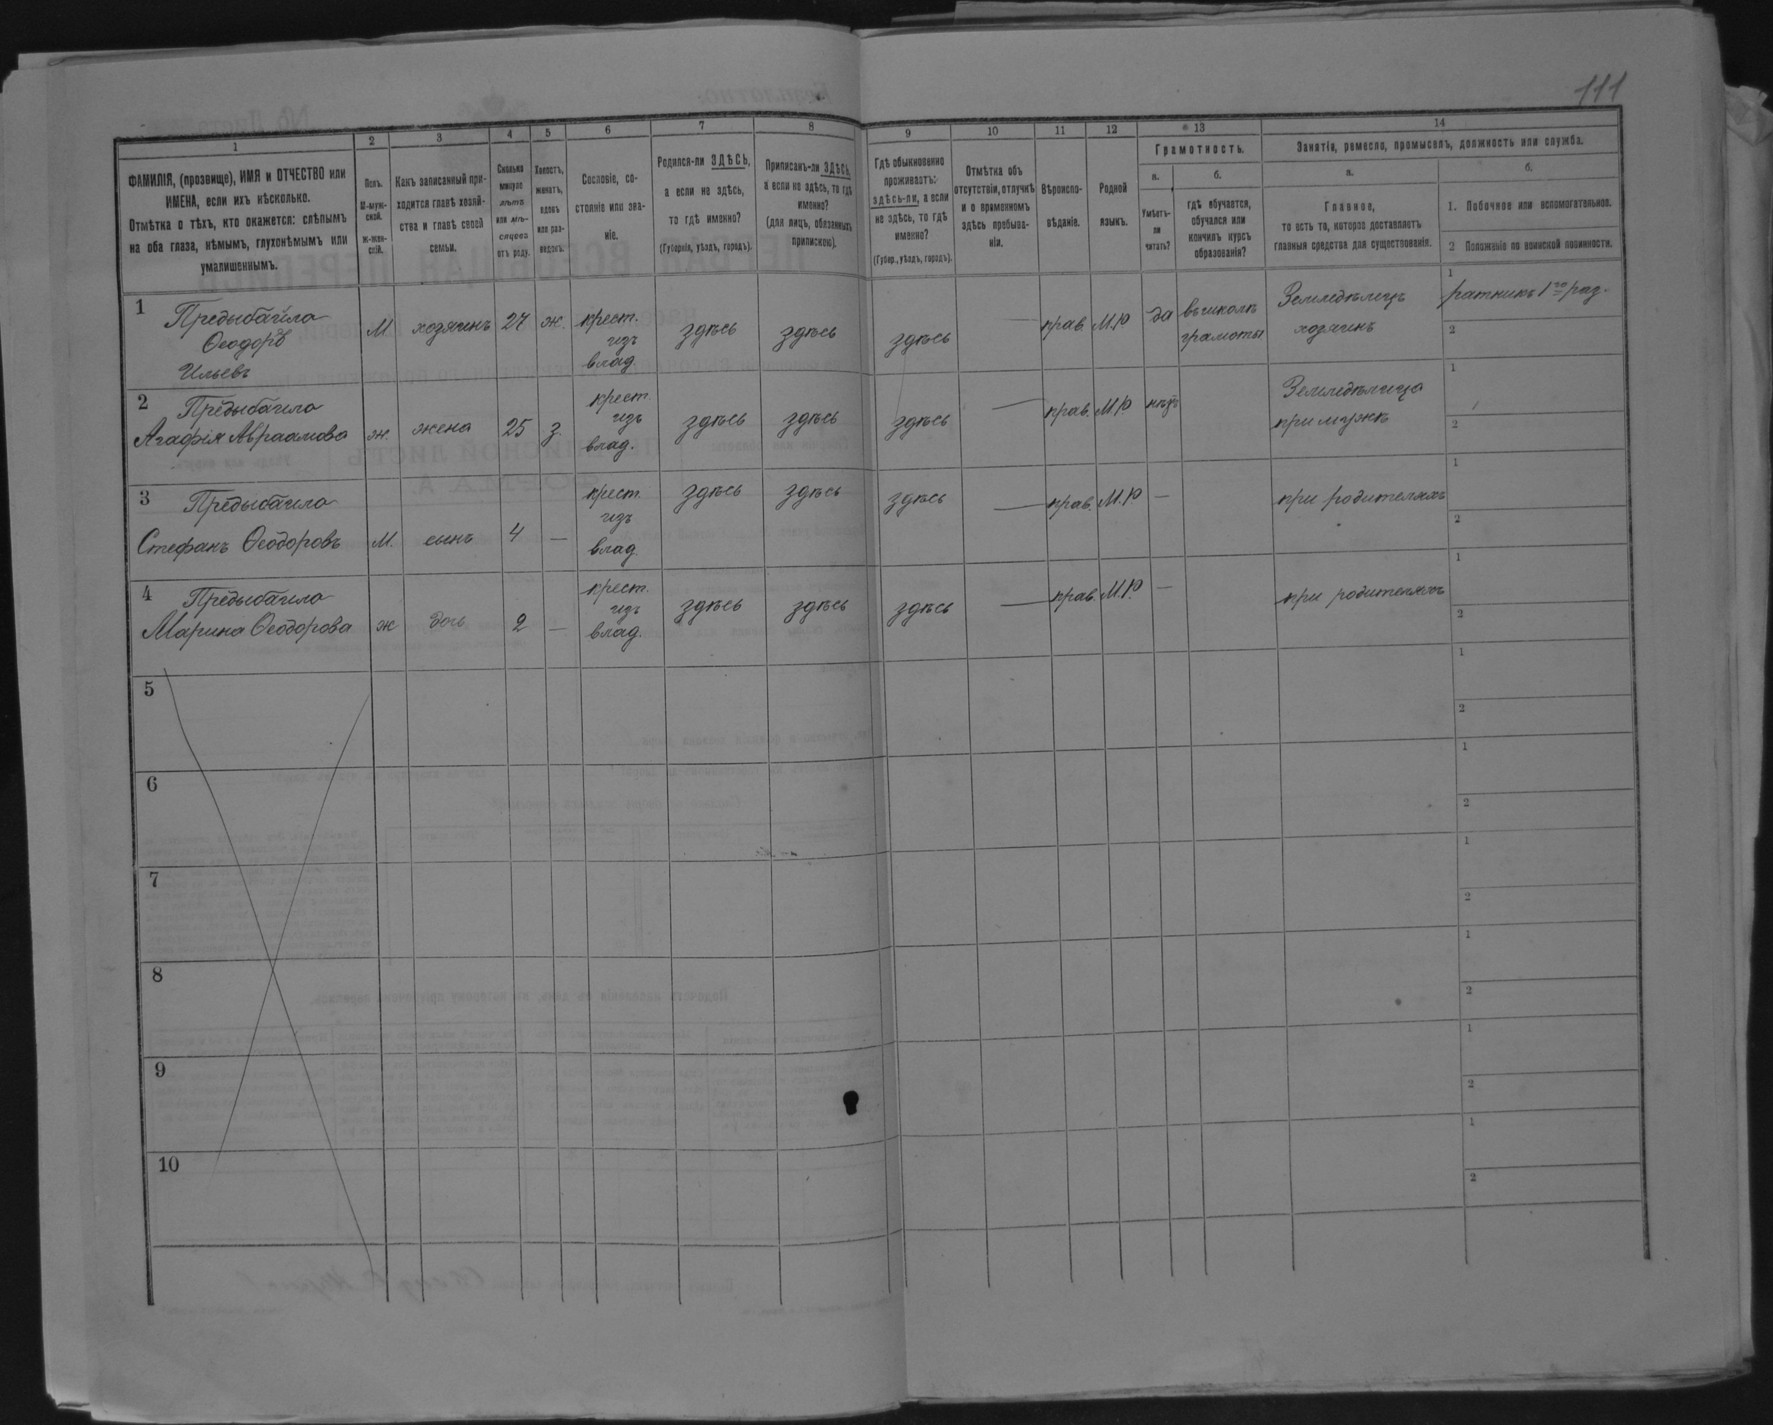 111
1
2
3
4
5
6
7
8
9
10
11
12
13
14
ФАМИЛІЯ, (прозвище), ИМЯ и ОТЧЕСТВО или
ИМЕНА, если ихъ нѣсколько.
Отмѣтка о тѣхъ, кто окажется: слѣпымъ
на оба глаза, нѣмымъ, глухонѣмымъ или
умалишеннымъ.
Полъ.
М-муж-
ской.
Ж-жен-
скій.
Какъ записанный при-
ходится главѣ хозяй-
ства и главѣ своей
семьи.
Сколько
минуло
лѣтъ
или мѣ-
сяцевъ
отъ роду.
Холостъ,
женатъ,
вдовъ
или раз-
веденъ.
Сословіе, со-
стояніе или зва-
ніе.
Родился-ли ЗДѢСЬ,
а если не здѣсь,
то гдѣ именно?
(Губернія, уѣздъ, городъ).
Приписанъ-ли ЗДѢСЬ,
а если не здѣсь, то гдѣ
именно?
(для лицъ, обязанныхъ
припискою).
Гдѣ обыкновенно
проживаетъ:
здѣсь-ли, а если
не здѣсь, то гдѣ
именно?
(Губер., уѣздъ, городъ).
Отмѣтка объ
отсутствіи, отлучкѣ
и о временномъ
здѣсь пребыва-
ніи.
Вѣроиспо-
вѣданіе.
Родной
языкъ.
Грамотность.
а.
Умѣетъ-
ли
читать?
б.
гдѣ обучается,
обучался или
кончилъ курсъ
образованія?
Занятія, ремесло, промыселъ, должность или служба.
а.
Главное,
то есть то, которое доставляетъ
главныя средства для существованія.
б.
1. Побочное или вспомогательное.
2 Положеніе по воинской повинности.
1 Предыбайло
Ѳеодоръ
Ильевъ
М хозяинъ 27 ж. крест.
изъ
влад.
здѣсь здѣсь здѣсь — прав. М.Р. да въ школѣ
грамоты
Земледѣлецъ
хозяинъ
1 ратникъ 1го раз.
2
2 Предыбайло
Агафія Авраамова
ж. жена 25 з. крест.
изъ
влад.
здѣсь здѣсь здѣсь — прав. М.Р. нѣтъ
Земледѣлица
при мужѣ
1
2
3 Предыбайло
Стефанъ Ѳеодоровъ
М. сынъ 4 — крест.
изъ
влад
здѣсь здѣсь здѣсь — прав. М.Р. —
при родителяхъ
1
2
4 Предыбайло
Марина Ѳеодорова
ж дочь 2 — крест.
изъ
влад.
здѣсь здѣсь здѣсь — прав. М.Р. —
при родителяхъ
1
2
5
1
2
6
1
2
7
1
2
8
1
2
9
1
2
10
1
2